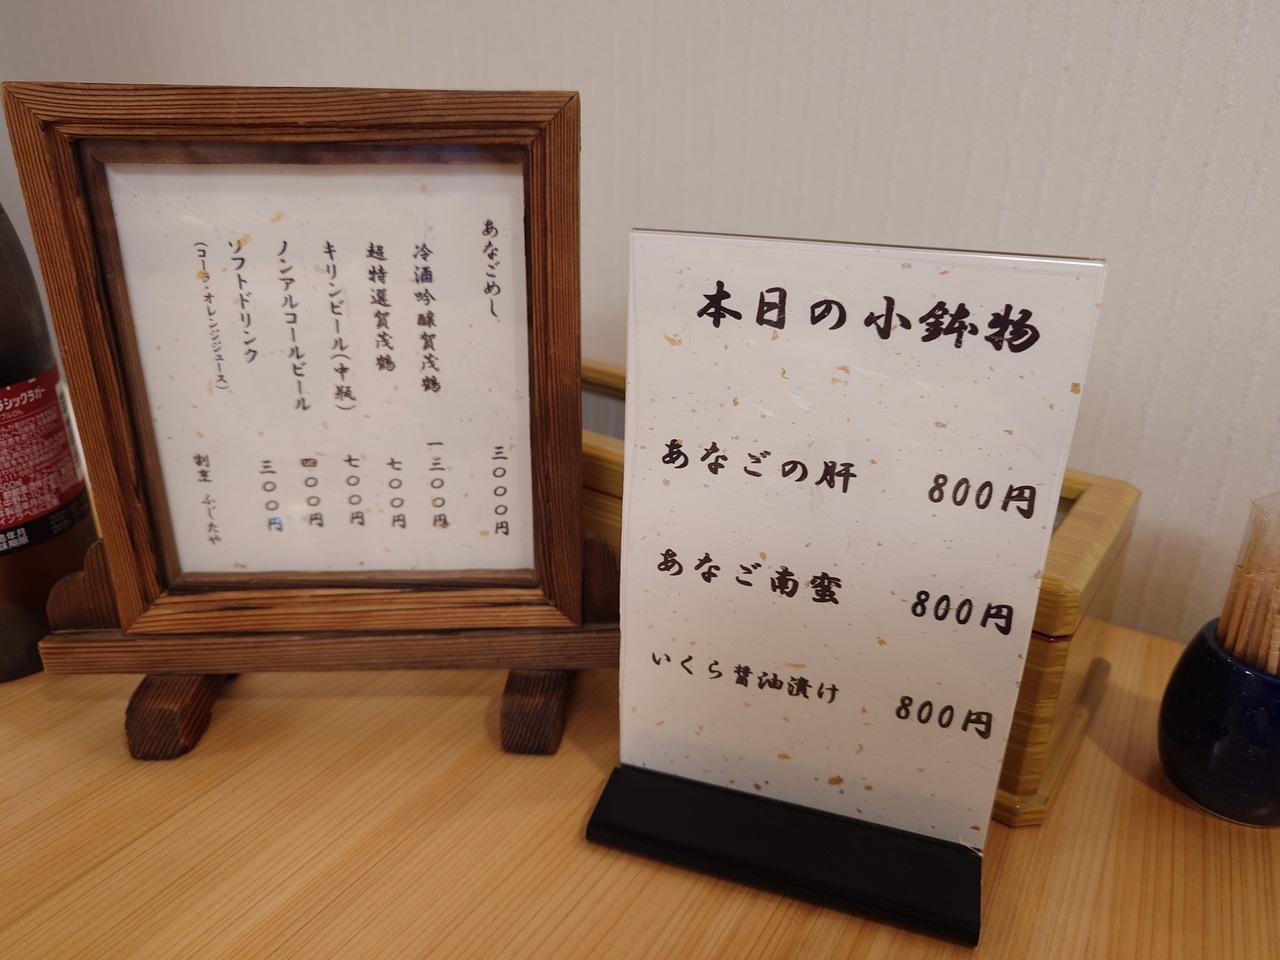 あなごめし 三〇〇〇円
冷酒吟醸賀茂鶴 一三〇〇円
超特選賀茂鶴 七〇〇円
キリンビール(中瓶) 七〇〇円
ノンアルコールビール 四〇〇円
ソフトドリンク 三〇〇円
(コーラ・オレンジジュース)
割烹 ふじたや
本日の小鉢物
あなごの肝 800円
あなご南蛮 800円
いくら醤油漬け 800円
ラシックラガー